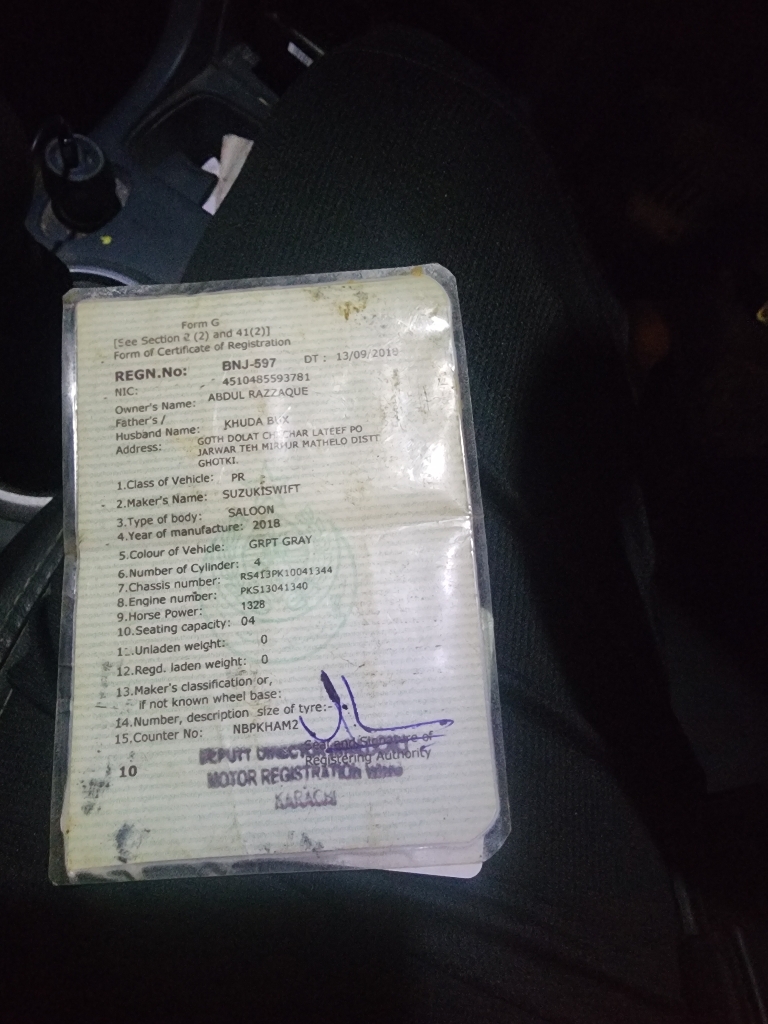 Form G
[See Section 2 (2) and 41(2)]
Form of Certificate of Registration
REGN.No: BNJ-597 DT : 13/09/2018
NIC: 4510485593781
Owner's Name: ABDUL RAZZAQUE
Father's /
Husband Name: KHUDA BUX
Address: GOTH DOLAT CHACHAR LATEEF PO
JARWAR TEH MIRPUR MATHELO DISTT
GHOTKI.
1.Class of Vehicle: PR
2.Maker's Name: SUZUKISWIFT
3.Type of body: SALOON
4.Year of manufacture: 2018
5.Colour of Vehicle: GRPT GRAY
6.Number of Cylinder: 4
7.Chassis number: RS413PK10041344
8.Engine number: PKS13041340
9.Horse Power: 1328
10.Seating capacity: 04
11.Unladen weight: 0
12.Regd. laden weight: 0
13.Maker's classification or,
if not known wheel base:
14.Number, description size of tyre:-
15.Counter No: NBPKHAM2
Seal and Signature of
Registering Authority
10
DEPUTY DIRECTOR
MOTOR REGISTRATION Wing
KARACHI